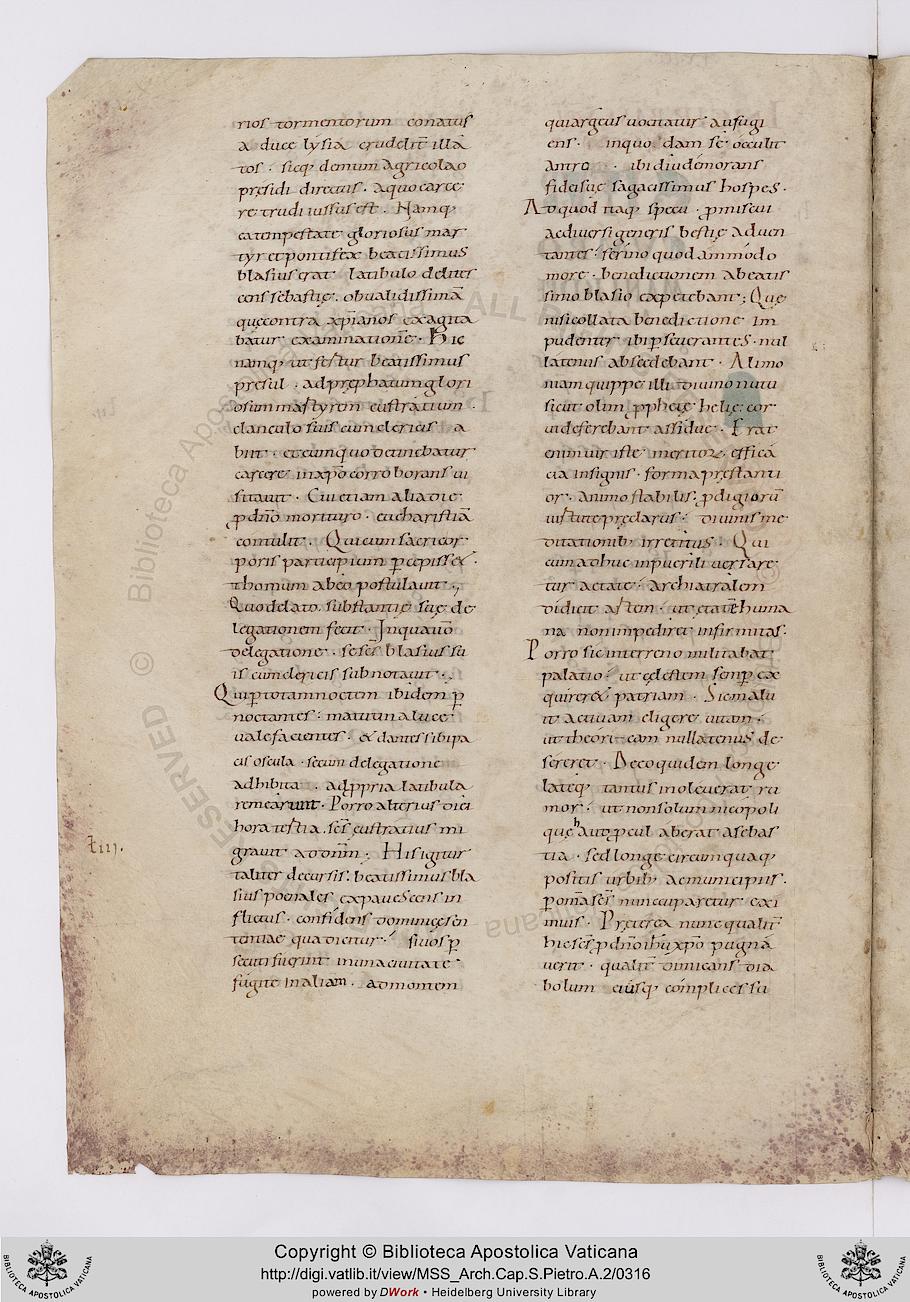 rios tormentorum conatus
a duce lysia crudelit̄ illa
tos · sicq; demum agricolao
pręsidi directus · a quo carce
re trudi iussus est · Namq;
ea tempestate gloriosus mar
tyr et pontifex beatissimus
blasius erat latibulo delites
cens sebastię · ob ualidissimā
quę contra xp̄ianos exagita
batur examinationē · Hic
namq; ut fertur beatissimus
presul · ad prephatum glori
osum martyrem eustratium ·
clanculo suis cum clericis a
biit · et eum quo detinebatur
carcere in xp̄o corroborans ui
sitauit · Cui etiam alia die
p̱ dn̄o morituro · eucharistiā
contulit · Qui cum sacri cor
poris participium p̱cepisset ·
thomum ab eo postulauit ·
Quo delato · substantię suę de
legationem fecit · In qua uō
delegatione · se sc̄s blasius su
is cum clericis subnotauit ·
Qui p̱ totam noctem ibidem p̱
noctantes · matutina luce
uale facientes · & dantes sibi pa
cis oscula · secum delegatione
adhibita · ad ppria latibula
remearunt · Porro alterius diei
hora tertia · sc̄s eustratius mi
grauit ad dn̄m · His igitur
taliter decursis · beatissimus bla
sius poenales expauescens in
flictus · confidens dominicę sen
tentiae qua dicitur · si uos p̱
secuti fuerint in una ciuitate
fugite in aliam · ad montem
qui argeus uocitatur aufugi
ens · in quodam se occulit
antro · ibi diu demorans
fidei suę sagacissimus hospes ·
Ad quod itaq; specu · p̱miscui
ac diuersi generis bestię aduen
tantes · ferino quodammodo
more · benedictionem a beatis
simo blasio expetebant ; Quę
nisi collata benedictione im
pudenter ibi p̱seuerantes · nul
latenus absedebant · Alimo
niam quippe illi diuino nutu
sicut olim pphetę helię cor
ui deferebant assidue · Erat
enim uir iste meritoꝝ efficā
cia insignis · forma prestanti
or · animo stabilis · p̱digiorū
uirtute pręclarus · diuinis me
ditationib; irretitus · Qui
cum adhuc in puerili uersare
tur aetate · archiatralem
didicit artem · ut ętatē huma
na non impediret infirmitas ·
Porro sic in terreno militabat
palatio · ut cęlestem semp̱ ex
quireret patriam · Sic malu
it actiuam eligere uitam ·
ut theori cam nullatenus de
sereret · Adeo quidem longe
lateq; tantus inoleuerat ru
mor · ut non solum nicopoli
quę haut p̱cul aberat a sebas
tia · sed longe circumquaq;
positis urbib; ac municipiis ·
p̱ om̄a sc̄s nuncuparetur exi
mius · Pręterea nunc qualit̄
hic sc̄s p̱ dn̄o ih̄u xp̄o pugna
uerit · qualit̄ dimicans dia
bolum eiusq; complices su
t iii ·
BIBLIOTECA APOSTOLICA VATICANA
Copyright © Biblioteca Apostolica Vaticana
http://digi.vatlib.it/view/MSS_Arch.Cap.S.Pietro.A.2/0316
powered by DWork • Heidelberg University Library
BIBLIOTECA APOSTOLICA VATICANA